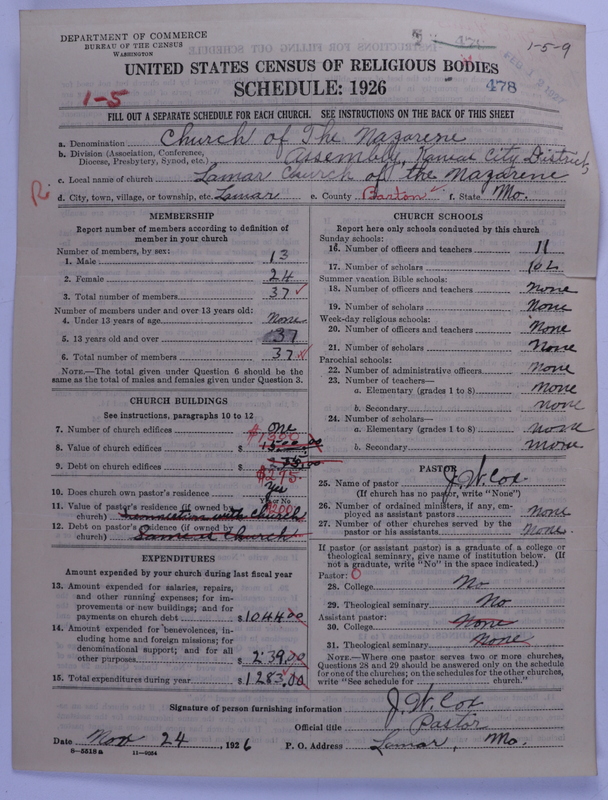 DEPARTMENT OF COMMERCE
BUREAU OF THE CENSUS
WASHINGTON
1-5-9
UNITED STATES CENSUS OF RELIGIOUS BODIES
SCHEDULE: 1926
478
1-5
FILL OUT A SEPARATE SCHEDULE FOR EACH CHURCH. SEE INSTRUCTIONS ON THE BACK OF THIS SHEET
a. Denomination Church of The Nazarene
b. Division (Association, Conference, Diocese, Presbytery, Synod, etc.) Assembly, Kansas City District,
c. Local name of church Lamar Church of the Nazarene
d. City, town, village, or township, etc. Lamar e. County Barton f. State Mo.
MEMBERSHIP
Report number of members according to definition of
member in your church
Number of members, by sex:
1. Male 13
2. Female 24
3. Total number of members 37
Number of members under and over 13 years old:
4. Under 13 years of age None
5. 13 years old and over 37
6. Total number of members 37
NOTE.—The total given under Question 6 should be
same as the total of males and females given under Question 3.
CHURCH BUILDINGS
See instructions, paragraphs 10 to 12
7. Number of church edifices one
8. Value of church edifices $
9. Debt on church edifices $
$275.
10. Does church own pastor's residence yes
Yes or No
11. Value of pastor's residence (if owned by
church) connection with church
12. Debt on pastor's residence (if owned by
church) Same as Church
EXPENDITURES
Amount expended by your church during last fiscal year
13. Amount expended for salaries, repairs,
and other running expenses; for im-
provements or new buildings; and for
payments on church debt $1044.00
14. Amount expended for benevolences, in-
cluding home and foreign missions; for
denominational support; and for all
other purposes $239.00
15. Total expenditures during year $1283.00
CHURCH SCHOOLS
Report here only schools conducted by this church
Sunday schools:
16. Number of officers and teachers 11
17. Number of scholars 102
Summer vacation Bible schools:
18. Number of officers and teachers None
19. Number of scholars None
Week-day religious schools:
20. Number of officers and teachers None
21. Number of scholars None
Parochial schools:
22. Number of administrative officers None
23. Number of teachers—
a. Elementary (grades 1 to 8) None
b. Secondary None
24. Number of scholars—
a. Elementary (grades 1 to 8) None
b. Secondary None
PASTOR
25. Name of pastor J. W. Cox.
(If church has no pastor, write "None")
26. Number of ordained ministers, if any, em-
ployed as assistant pastors None
27. Number of other churches served by the
pastor or his assistants None.
If pastor (or assistant pastor) is a graduate of a college or
theological seminary, give name of institution below. (If
not a graduate, write "No" in the space indicated.)
Pastor: 0
28. College No
29. Theological seminary No
Assistant pastor:
30. College None
31. Theological seminary None
NOTE.—Where one pastor serves two or more churches,
Questions 28 and 29 should be answered only on the schedule
for one of the churches; on the schedules for the other churches,
write "See schedule for church."
Signature of person furnishing information J. W. Cox
Official title Pastor
Date Nov 24, 1926 P. O. Address Lamar, Mo.
8-5518a 11-9054